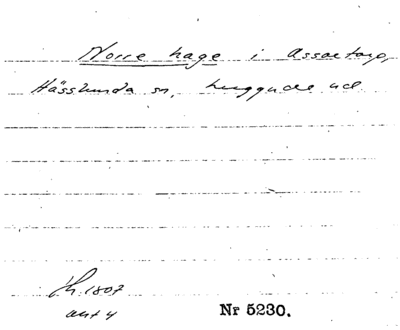 Norre hage i Assartorp,
Hässlunda sn, Luggude hd.
1807
akt 4
Nr 5230.